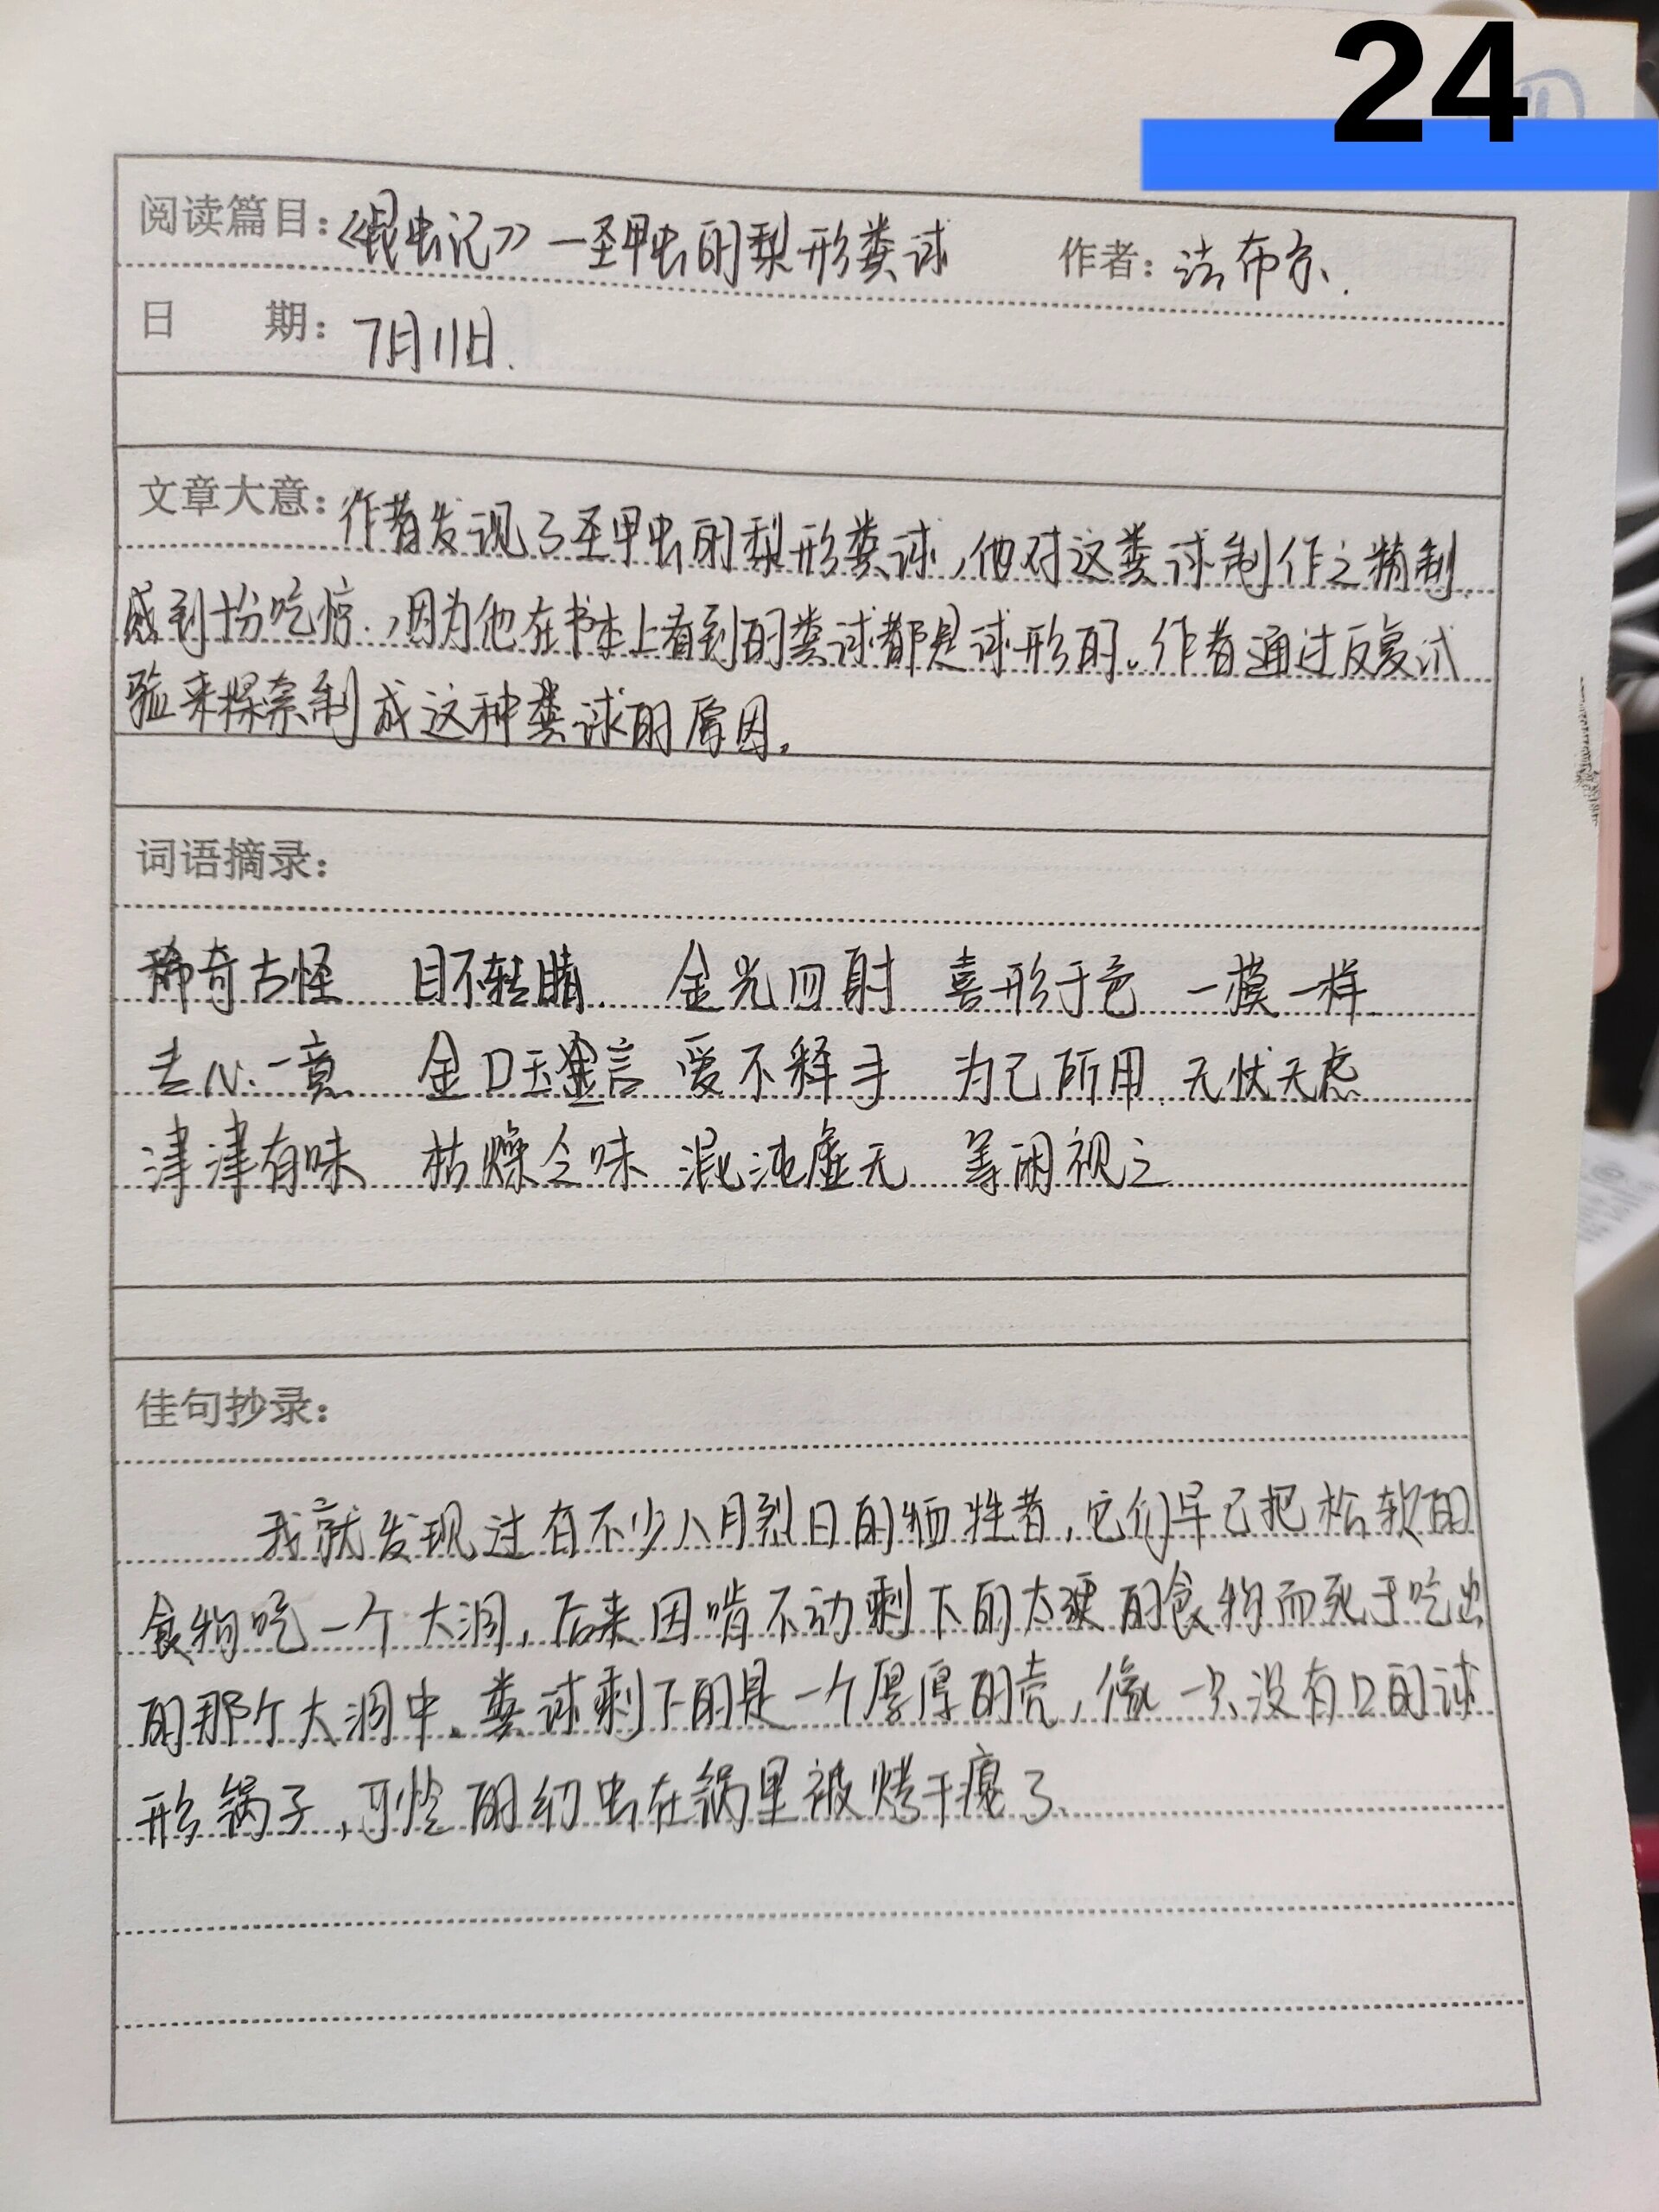 24
阅读篇目：《昆虫记》—圣甲虫的梨形粪球 作者：法布尔.
日 期：7月11日.
文章大意：作者发现了圣甲虫的梨形粪球，他对这粪球制作之精制
感到十分吃惊，因为他在书本上看到的粪球都是球形的。作者通过反复试
验来探索制成这种粪球的原因。
词语摘录：
稀奇古怪 目不转睛 金光四射 喜形于色 一模一样
专心一意 金口玉言 爱不释手 为己所用 无忧无虑
津津有味 枯燥乏味 混沌虚无 等闲视之
佳句抄录：
我就发现过有不少八月烈日的牺牲者，它们早已把松软的
食物吃一个大洞，后来因啃不动剩下的太硬的食物而死于吃出
的那个大洞中。粪球剩下的是一个厚厚的壳，像一只没有口的球
形锅子，可怜的幼虫在锅里被烤干瘪了。